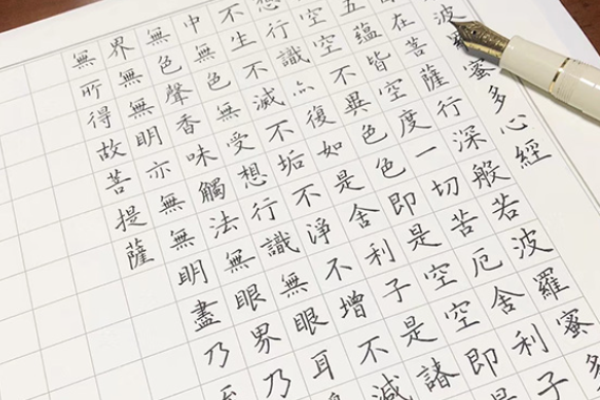 波蜜多心經
在菩薩行深般若波羅蜜多
五蘊皆空度一切苦厄舍利子
空空不異色色即是空空即是
行識亦復如是舍利子是諸
不生不滅不垢不淨不增不減
中無色無受想行識無眼耳
無色聲香味觸法無眼界乃
界無無明亦無無明盡乃至
無所得故菩提薩